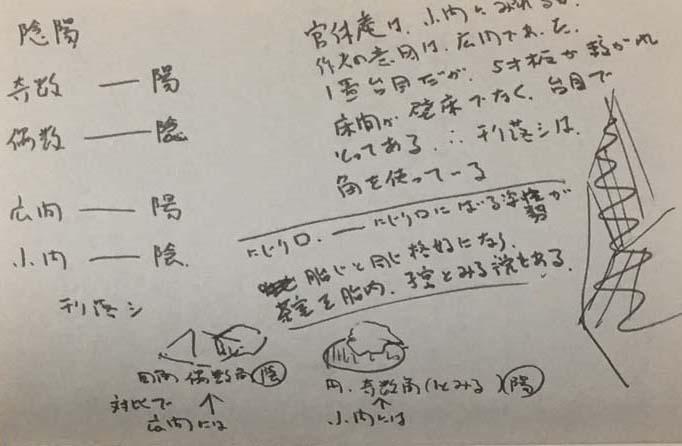 陰陽
奇数 — 陽
偶数 — 陰
広間 — 陽
小間 — 陰
官休庵は、小間に
作者の意図は、広間であった.
1畳台目だが、5寸板が敷かれ
床間が 壁床でなく、台目で
とってある. ∴ 利落シは.
角を使っている
にじり口. — にじり口に はいる姿勢が
胎児と同じ格好になり、
茶室を胎内、子宮とみる説もある.
利落シ
四角 偶数角 陰
対比で
広間には
円. 奇数角(1とみる) 陽
小間には